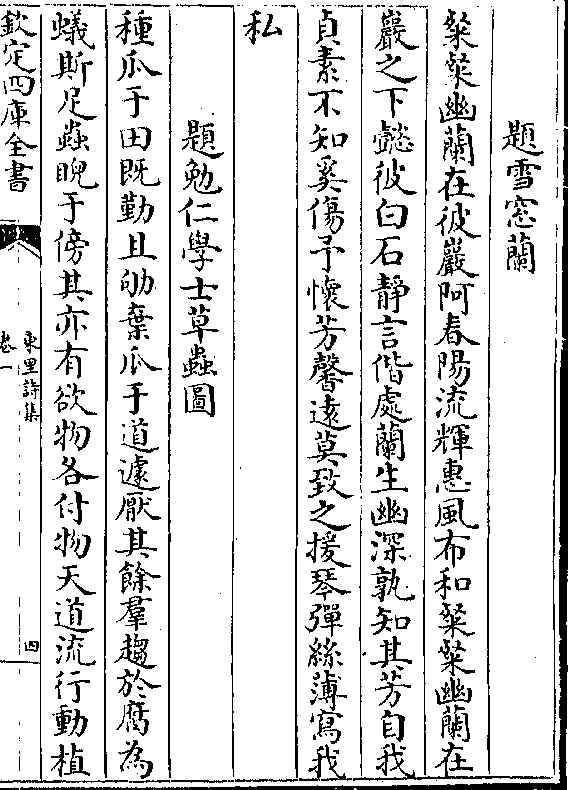 題雪窓蘭
粲粲幽蘭在彼巖阿春陽流輝惠風布和粲粲幽蘭在
巖之下懿彼白石靜言偕處蘭生幽深孰知其芳自我
貞素不知奚傷予懷芳馨遠莫致之援琴彈絲薄寫我
私
題勉仁學士草蟲圖
種瓜于田既勤且劬棄瓜于道遽厭其餘羣趨於腐為
蟻斯足蟲睨于傍其亦有欲物各付物天道流行動植
欽定四庫全書
東里詩集
卷一
四